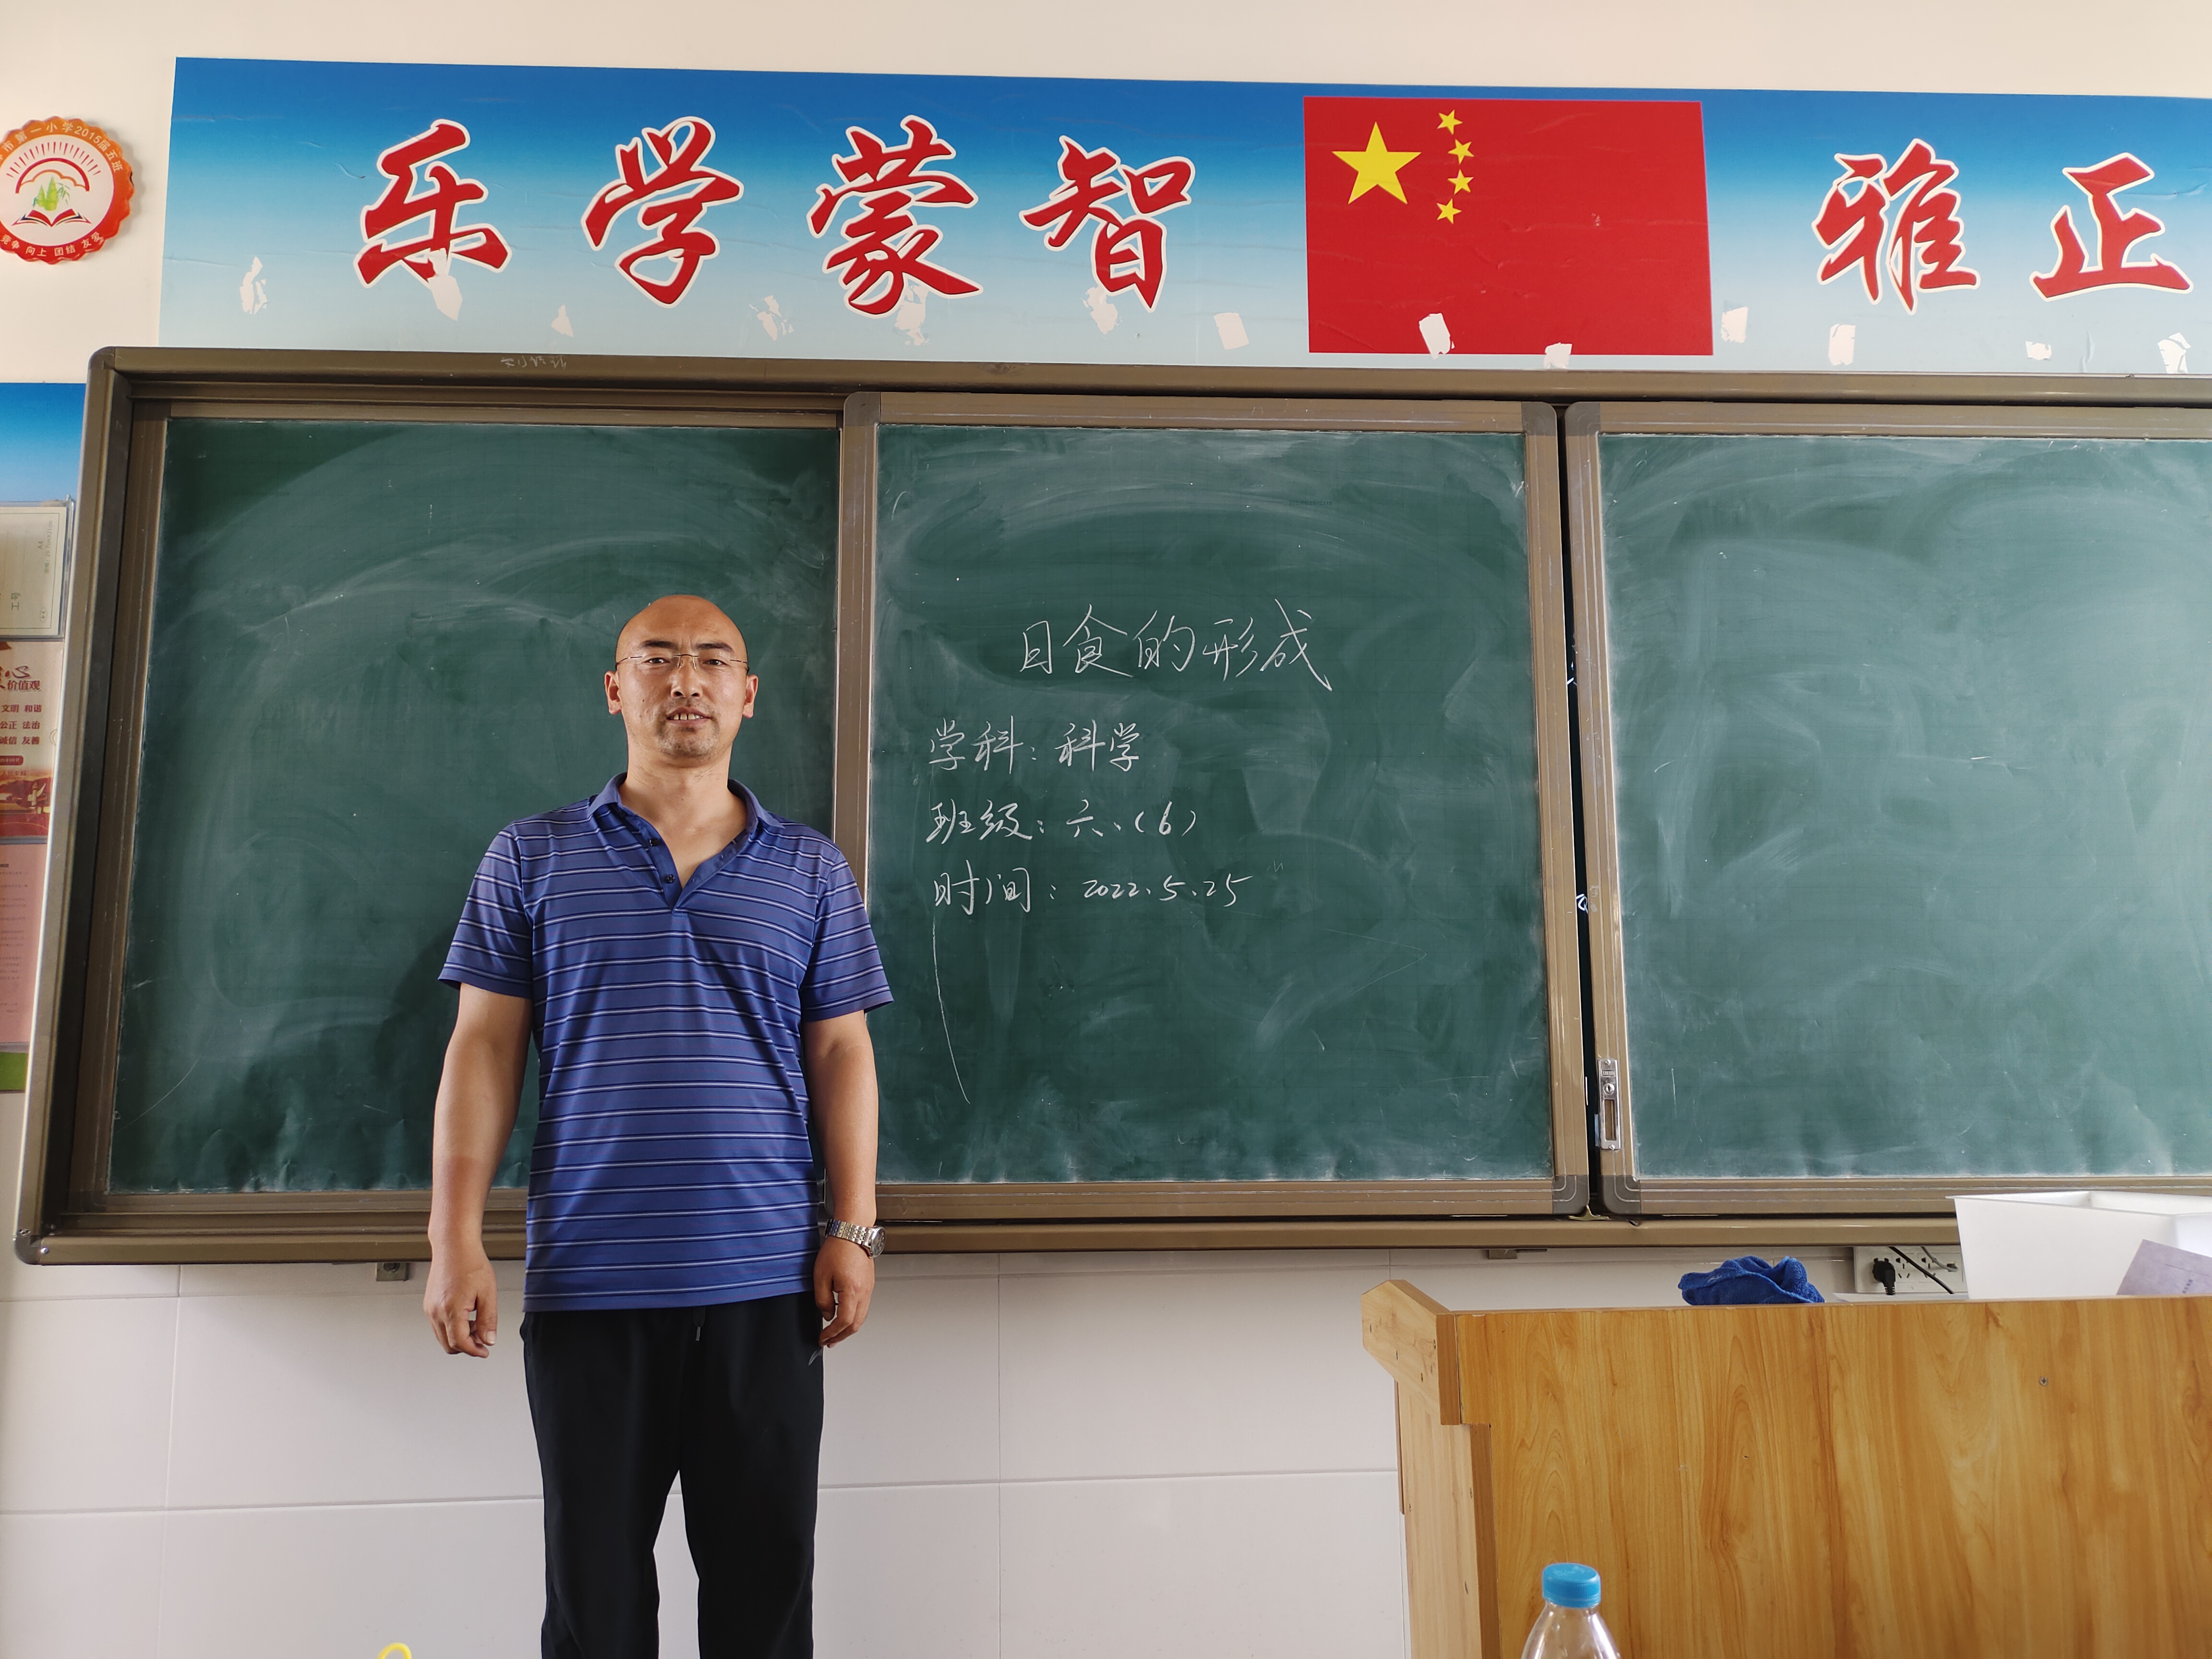 乐学蒙智 雅正
市第一小学2015届五班
竞争 向上 团结 友爱
日食的形成
学科：科学
班级：六、（6）
时间：2022.5.25
价值观
文明 和谐
公正 法治
诚信 友善